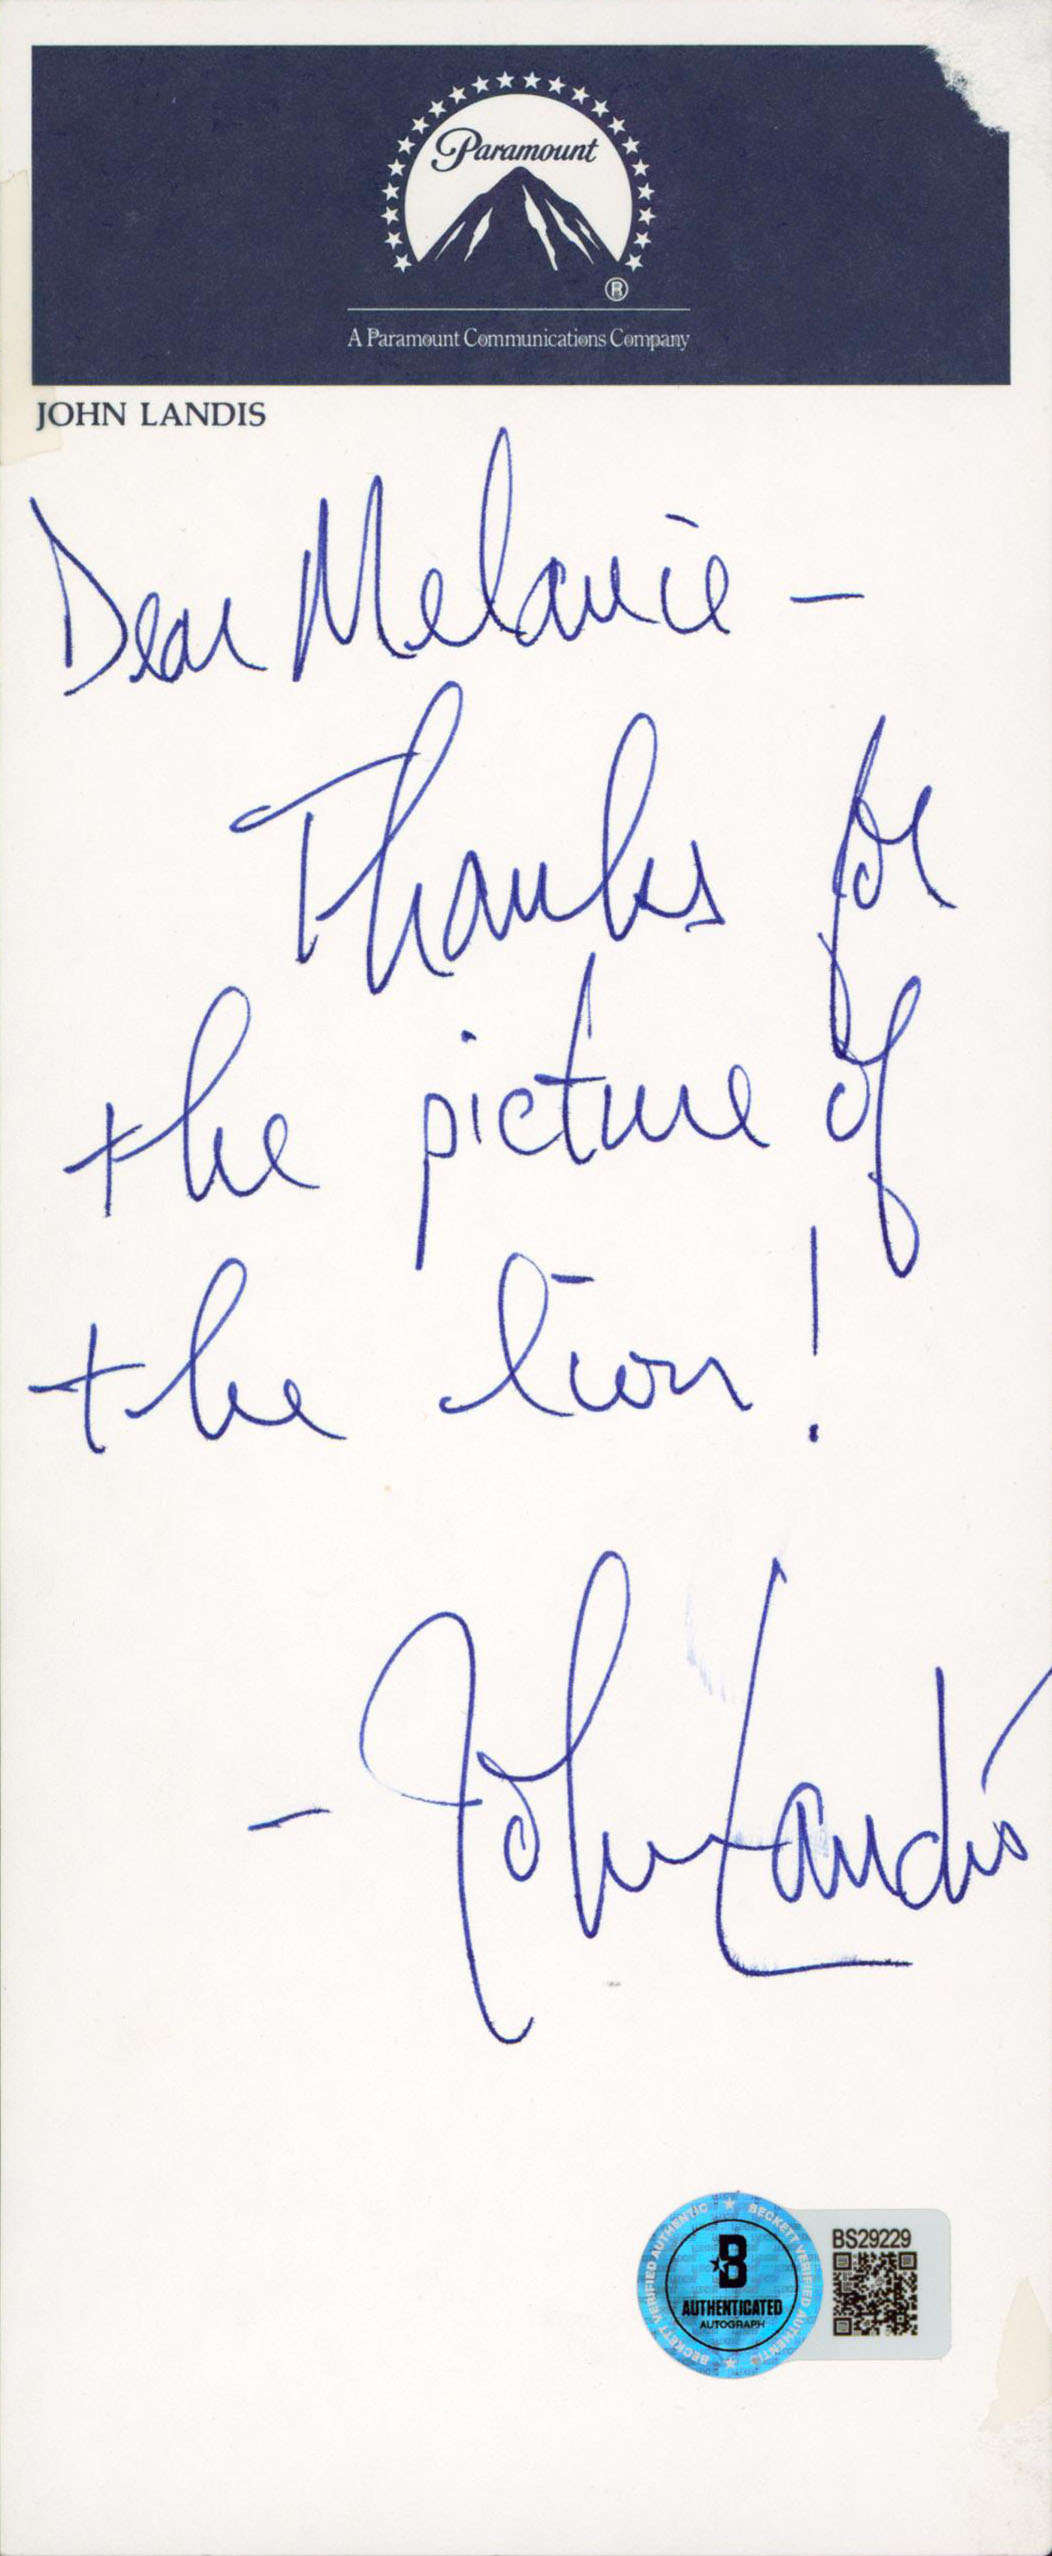 Paramount
®
A Paramount Communications Company
JOHN LANDIS
Dear Melanie –
Thanks for
the picture of
the lion!
– John Landis
BECKETT VERIFIED AUTHENTIC
BECKETT VERIFIED AUTHENTIC
B
AUTHENTICATED
AUTOGRAPH
BS29229